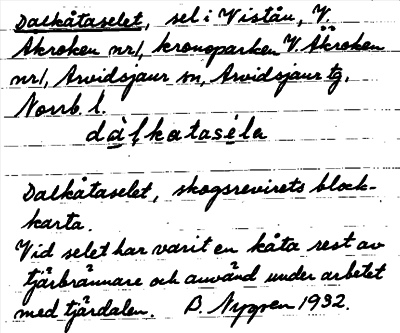 Dalkåtaselet, sel i Viståu, V.
Åkroken nr1, kronoparken V. Åkroken
nr1, Arvidsjaur sn, Arvidsjaur tg,
Norrb. l.
dàlkataséla
Dalkåtaselet, skogsrevirets block-
karta.
Vid selet har varit en kåta rest av
tjärbrännare och använd under arbetet
med tjärdalen. B. Nygren 1932.